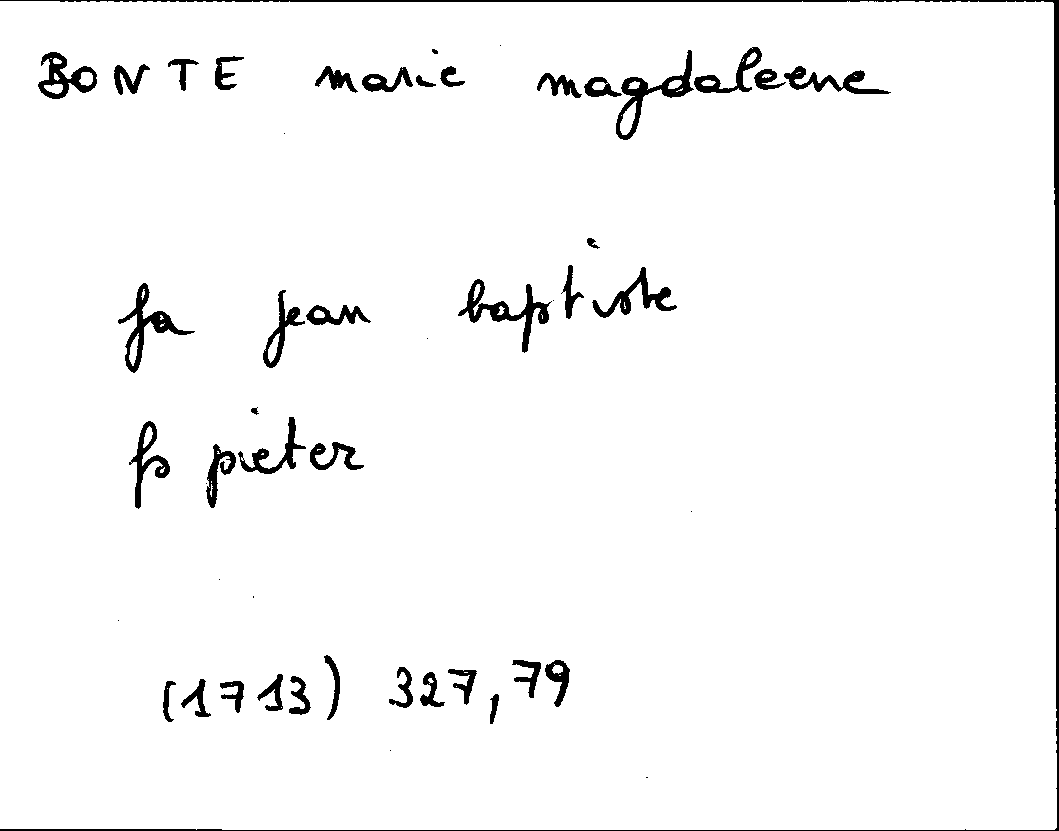 BONTE marie magdaleene
fa jean baptiste
fs pieter
(1713) 327,79